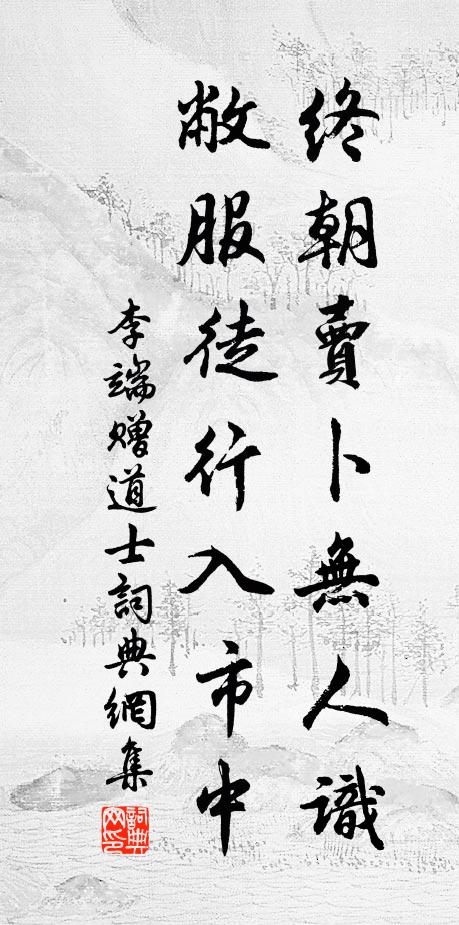 終朝賣卜無人識
敝服徒行入市中
李端贈道士詞典網集
詞典網印